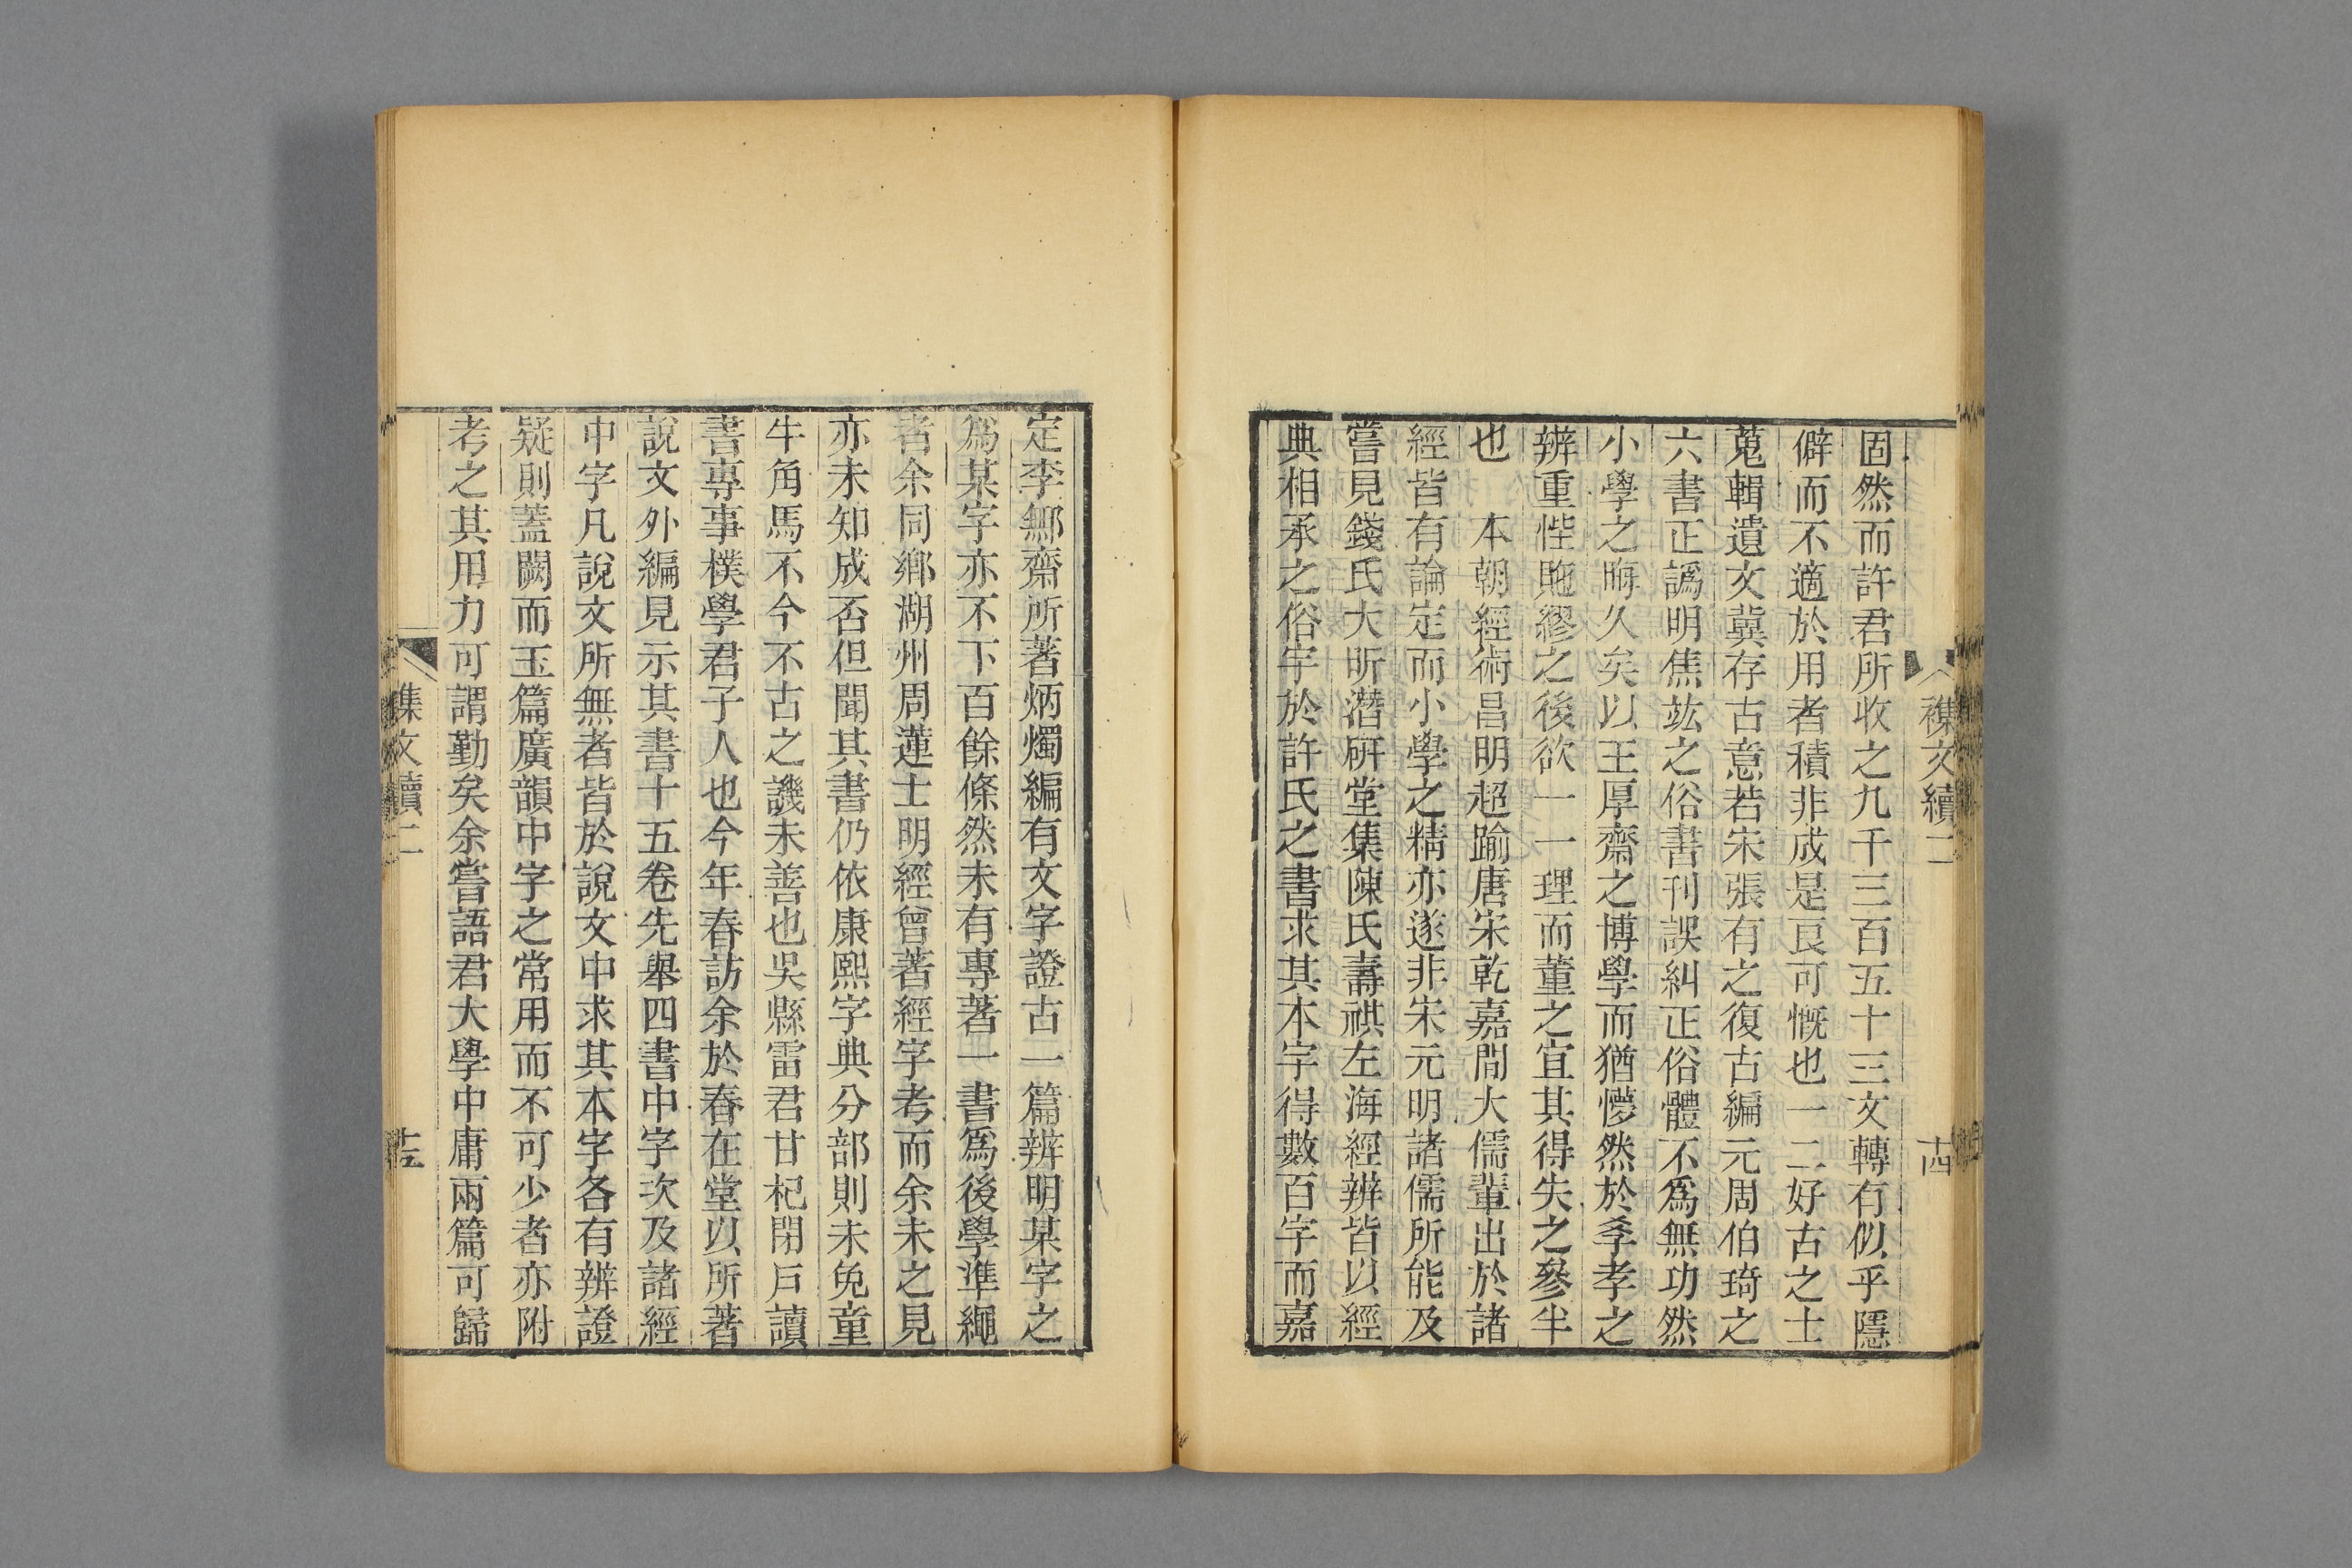 襍文續二
十四
固然而許君所收之九千三百五十三文轉有似乎隱
僻而不適於用者積非成是良可慨也一二好古之士
蒐輯遺文冀存古意若宋張有之復古編元周伯琦之
六書正譌明焦竑之俗書刊誤糾正俗體不爲無功然
小學之晦久矣以王厚齋之博學而猶懜然於㸒孝之
辨重悂貤繆之後欲一一理而董之宜其得失之參半
也 本朝經術昌明超踰唐宋乾嘉間大儒輩出於諸
經皆有論定而小學之精亦遂非宋元明諸儒所能及
嘗見錢氏大昕潛研堂集陳氏壽祺左海經辨皆以經
典相承之俗字於許氏之書求其本字得數百字而嘉
定李鄦齋所著炳燭編有文字證古一篇辨明某字之
爲某字亦不下百餘條然未有專著一書爲後學準繩
者余同鄉湖州周蓮士明經曾著經字考而余未之見
亦未知成否但聞其書仍依康熙字典分部則未免童
牛角馬不今不古之譏未善也吳縣雷君甘杞閉戶讀
書專事樸學君子人也今年春訪余於春在堂以所著
說文外編見示其書十五卷先舉四書中字次及諸經
中字凡說文所無者皆於說文中求其本字各有辨證
疑則蓋闕而玉篇廣韻中字之常用而不可少者亦附
考之其用力可謂勤矣余嘗語君大學中庸兩篇可歸
集文續二
十五